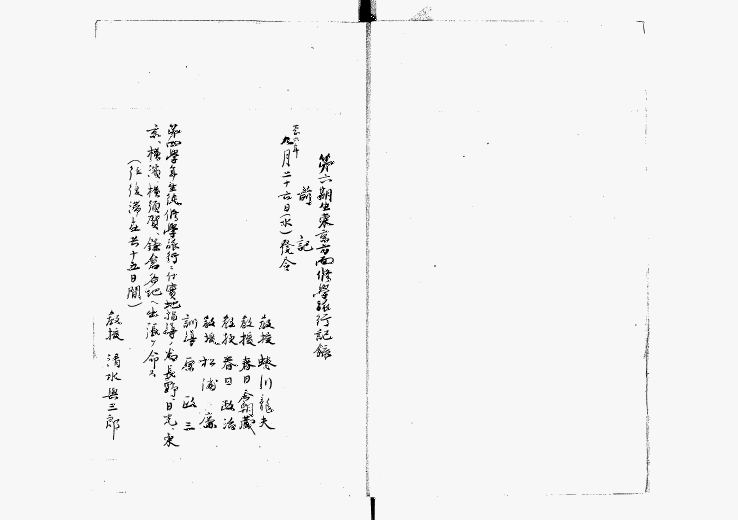 第六期生東京方面修學旅行記錄
前記
九月二十六日(水)發令
教授 蜷川龍夫
教授 春日
教授 春日政治
教授 松浦
訓導 原政三
第四學年生徒修學旅行ニ付實地指導ノ為長野、日光、東
京、橫濱、橫須賀、鎌倉各地ヘ出張ヲ命ス
(往復滯在共十五日間)
教授 清水與三郎